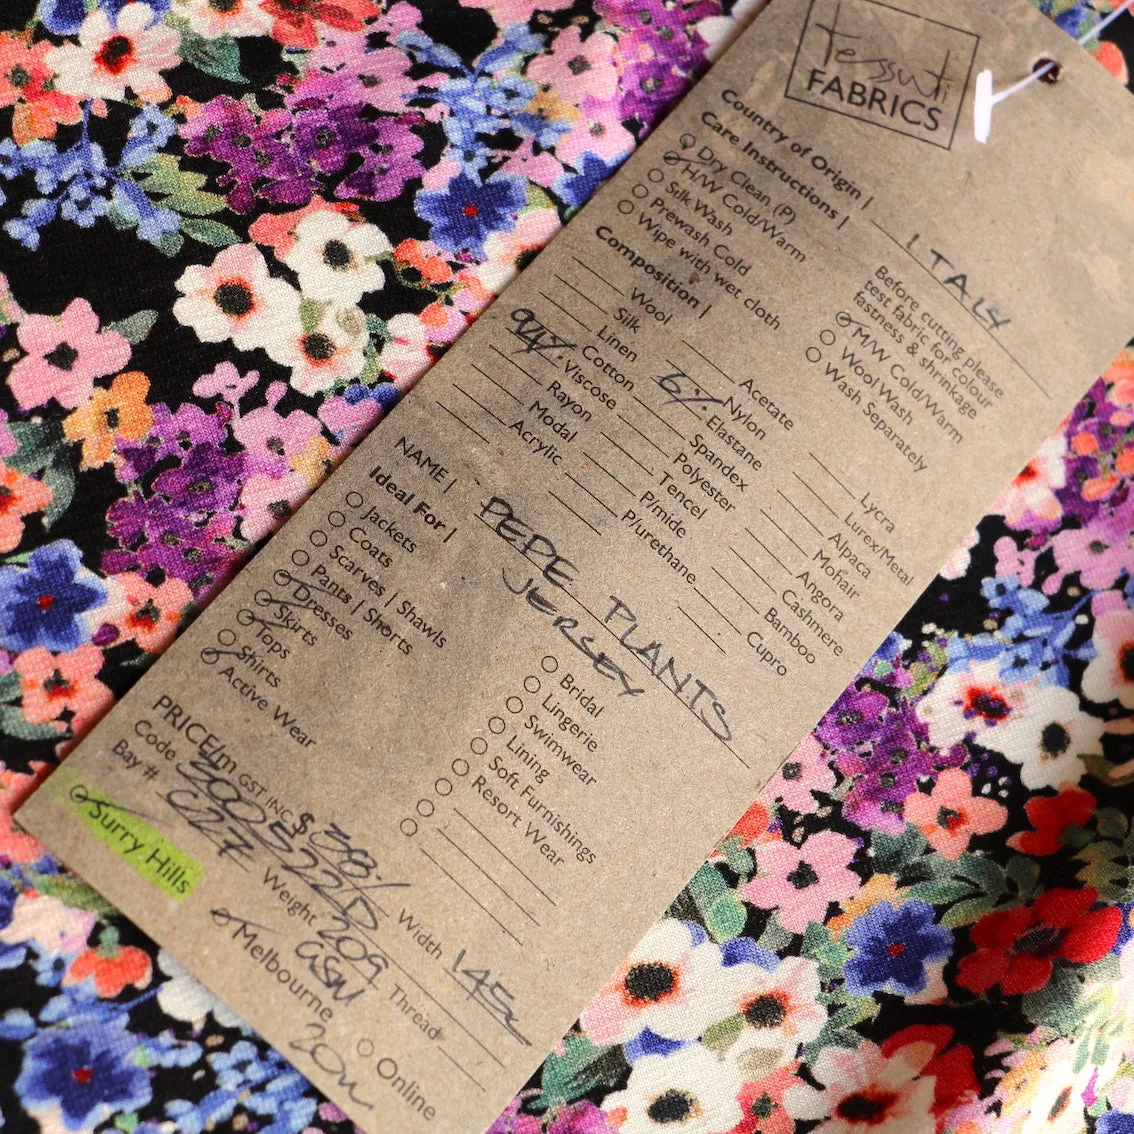 Tessuti
FABRICS
Country of Origin | ITALY
Care Instructions |
Before cutting please
test fabric for colour
fastness & shrinkage
Dry Clean (P)
H/W Cold/Warm
Silk Wash
Prewash Cold
Wipe with wet cloth
M/W Cold/Warm
Wool Wash
Wash Separately
Composition |
Wool
Silk
Linen
Cotton
94% Viscose
Rayon
Modal
Acrylic
Acetate
Nylon
6% Elastane
Spandex
Polyester
Tencel
P/mide
P/urethane
Lycra
Lurex/Metal
Alpaca
Mohair
Angora
Cashmere
Bamboo
Cupro
NAME | PEPE PLANTS
JERSEY
Ideal For |
Jackets
Coats
Scarves | Shawls
Pants | Shorts
Dresses
Skirts
Tops
Shirts
Active Wear
Bridal
Lingerie
Swimwear
Lining
Soft Furnishings
Resort Wear
PRICE/m GST INC $ 38
Width 145
Code
Weight 209
GSM
Thread
Bay # C27
Surry Hills
Melbourne
Online